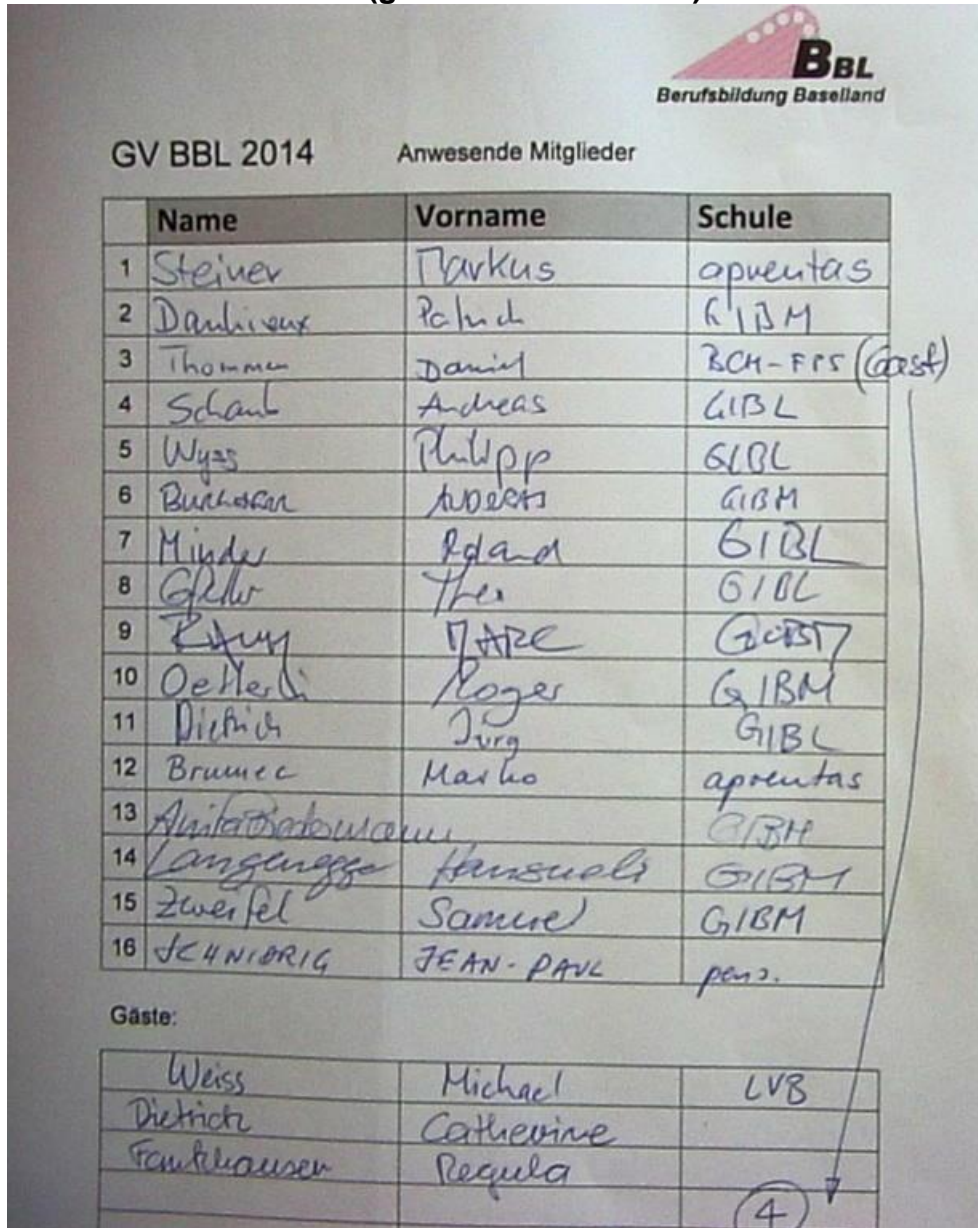 BBL
Berufsbildung Baselland
GV BBL 2014 Anwesende Mitglieder
Name Vorname Schule
1 Steiner Markus aprentas
2 GIBM
3 Thommen Daniel BCH-FPS (Gast)
4 Schaub Andreas GIBL
5 Wyss Philipp GIBL
6 GIBM
7 Minder Roland GIBL
8 Theo GIBL
9 MARC GIBM
10 Oetterli Roger GIBM
11 Dietrich Jürg GIBL
12 Brumec Marko aprentas
13 Anita Biedermann GIBM
14 Langenegger Hansueli GIBM
15 Zweifel Samuel GIBM
16 SCHNIDRIG JEAN-PAUL pens.
Gäste:
Weiss Michael LVB
Dietrich Catherine
Fankhauser Regula
4